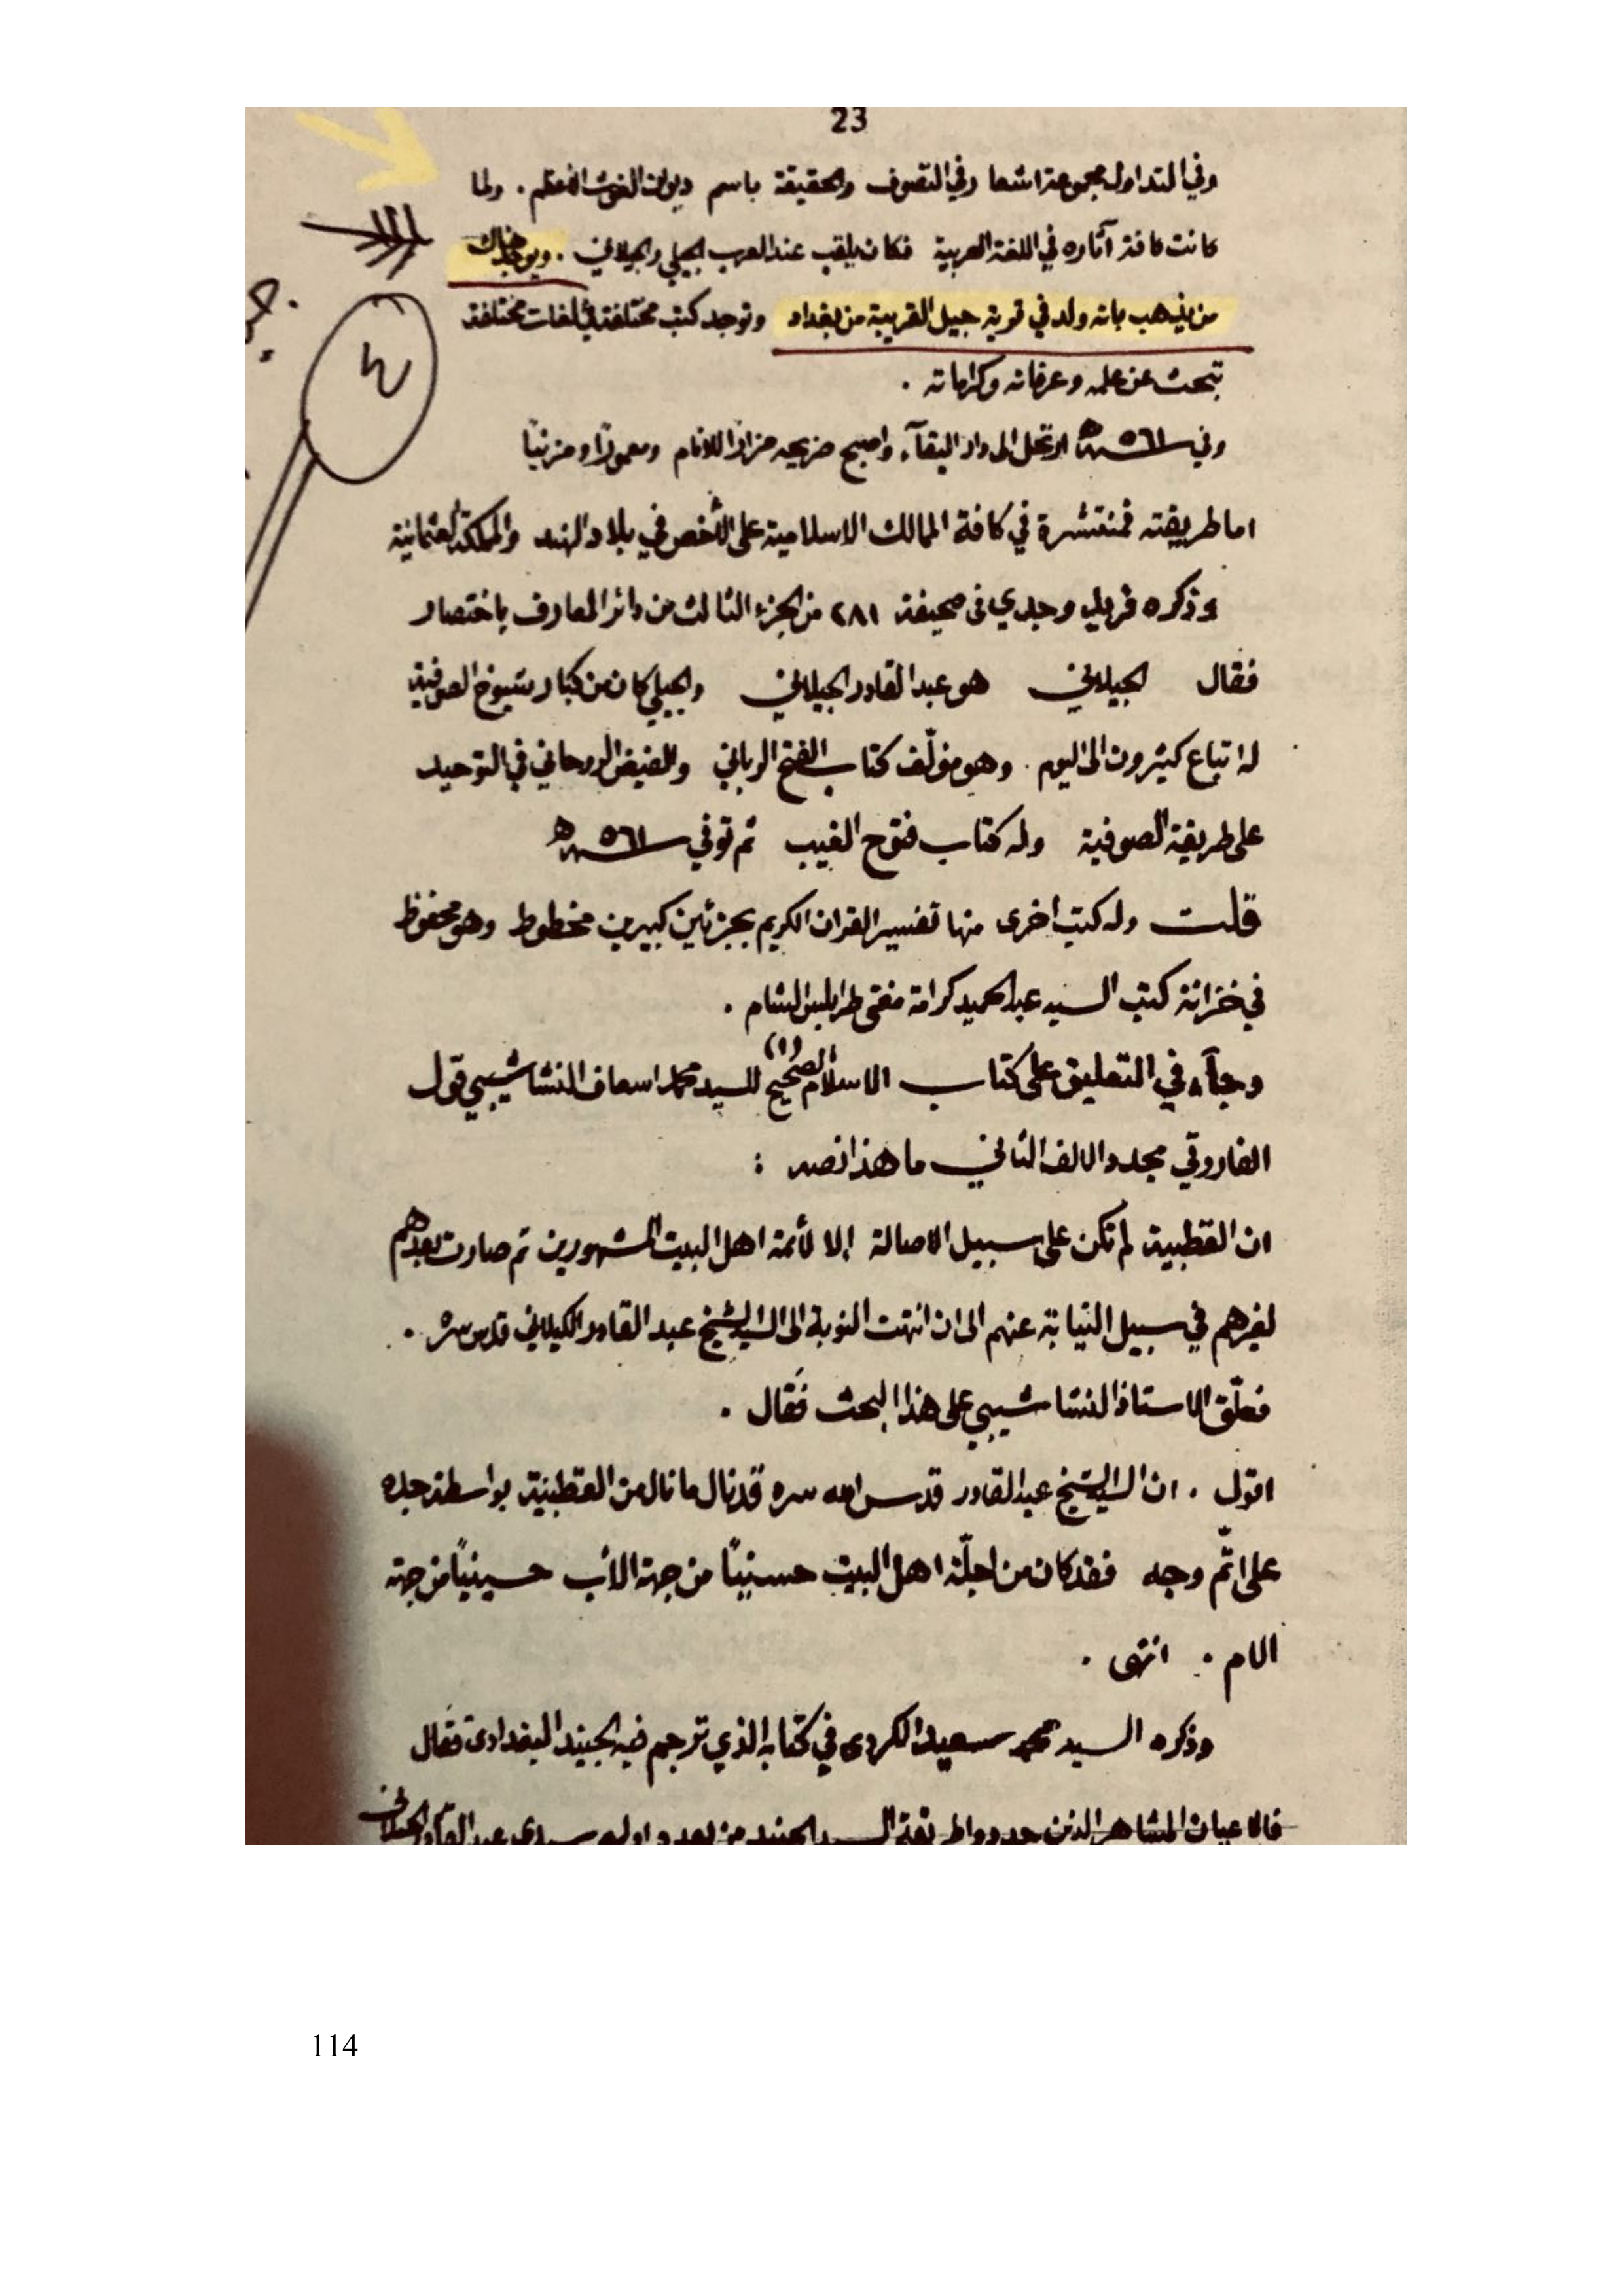 23
وفي التداول مجموعة اشعا رفي التصوف والحقيقة باسم ديوان الغوث الاعظم . ولما
كانت كافة آثاره في اللغة العربية فكان يلقب عند العرب الجيلي والجيلاني . ويوجد هناك
من يذهب بانه ولد في قرية جيل القريبة من بغداد وتوجد كتب مختلفة في لغات مختلفة
تبحث عن علمه وعرفانه وكراماته .
وفي ٥٦١ هـ ارتحل الى دار البقآء واصبح ضريحه مزارًا للانام ومعمورًا ومزينًا
اما طريقته فمنتشرة في كافة الممالك الاسلامية على الأخص في بلاد الهند والمملكة العثمانية
وذكره فريد وجدي فى صحيفة ٢٨١ من الجزء الثالث من دائر المعارف باختصار
فقال الجيلاني هو عبد القادر الجيلاني والجيلي كان من كبار شيوخ الصوفية
له اتباع كثيرون الى اليوم . وهو مؤلّف كتاب الفتح الرباني والفيض الروحاني في التوحيد
على طريقة الصوفية وله كتاب فتوح الغيب ثم توفي ٥٦١ هـ
قلت وله كتب اخرى منها تفسير القران الكريم بجزئين كبيرين مخطوط وهو محفوظ
في خزانة كتب السيد عبد الحميد كرامة مفتى طرابلس الشام .
وجآء في التعليق على كتاب الاسلام الصحيح (١) للسيد محمد اسعاف النشاشيبي قول
الفاروقي مجدد الالف الثاني ما هذا نصه :
ان القطبية لم تكن على سبيل الاصالة إلا لأئمة اهل البيت المشهورين ثم صارت بعدهم
لغيرهم في سبيل النيابة عنهم الى ان انتهت النوبة الى السيد الشيخ عبد القادر الكيلاني قدس سره .
فعلّق الاستاذ النشاشيبي على هذا البحث فقال .
اقول . ان السيد الشيخ عبد القادر قدس الله سره قد نال ما نال من القطبية بواسطة جده
على اتّم وجه فقد كان من اجلّة اهل البيت حسنيًا من جهة الأب حسينيًا من جهة
الام . انتهى .
وذكره السيد محمد سعيد الكردى في كتابه الذي ترجم فيه الجنيد البغدادى فقال
فالاعيان المشاهير الذين جددوا طريقة السيد الجنيد من بعده اولهم سيدي عبد القادر الجيلانى
114